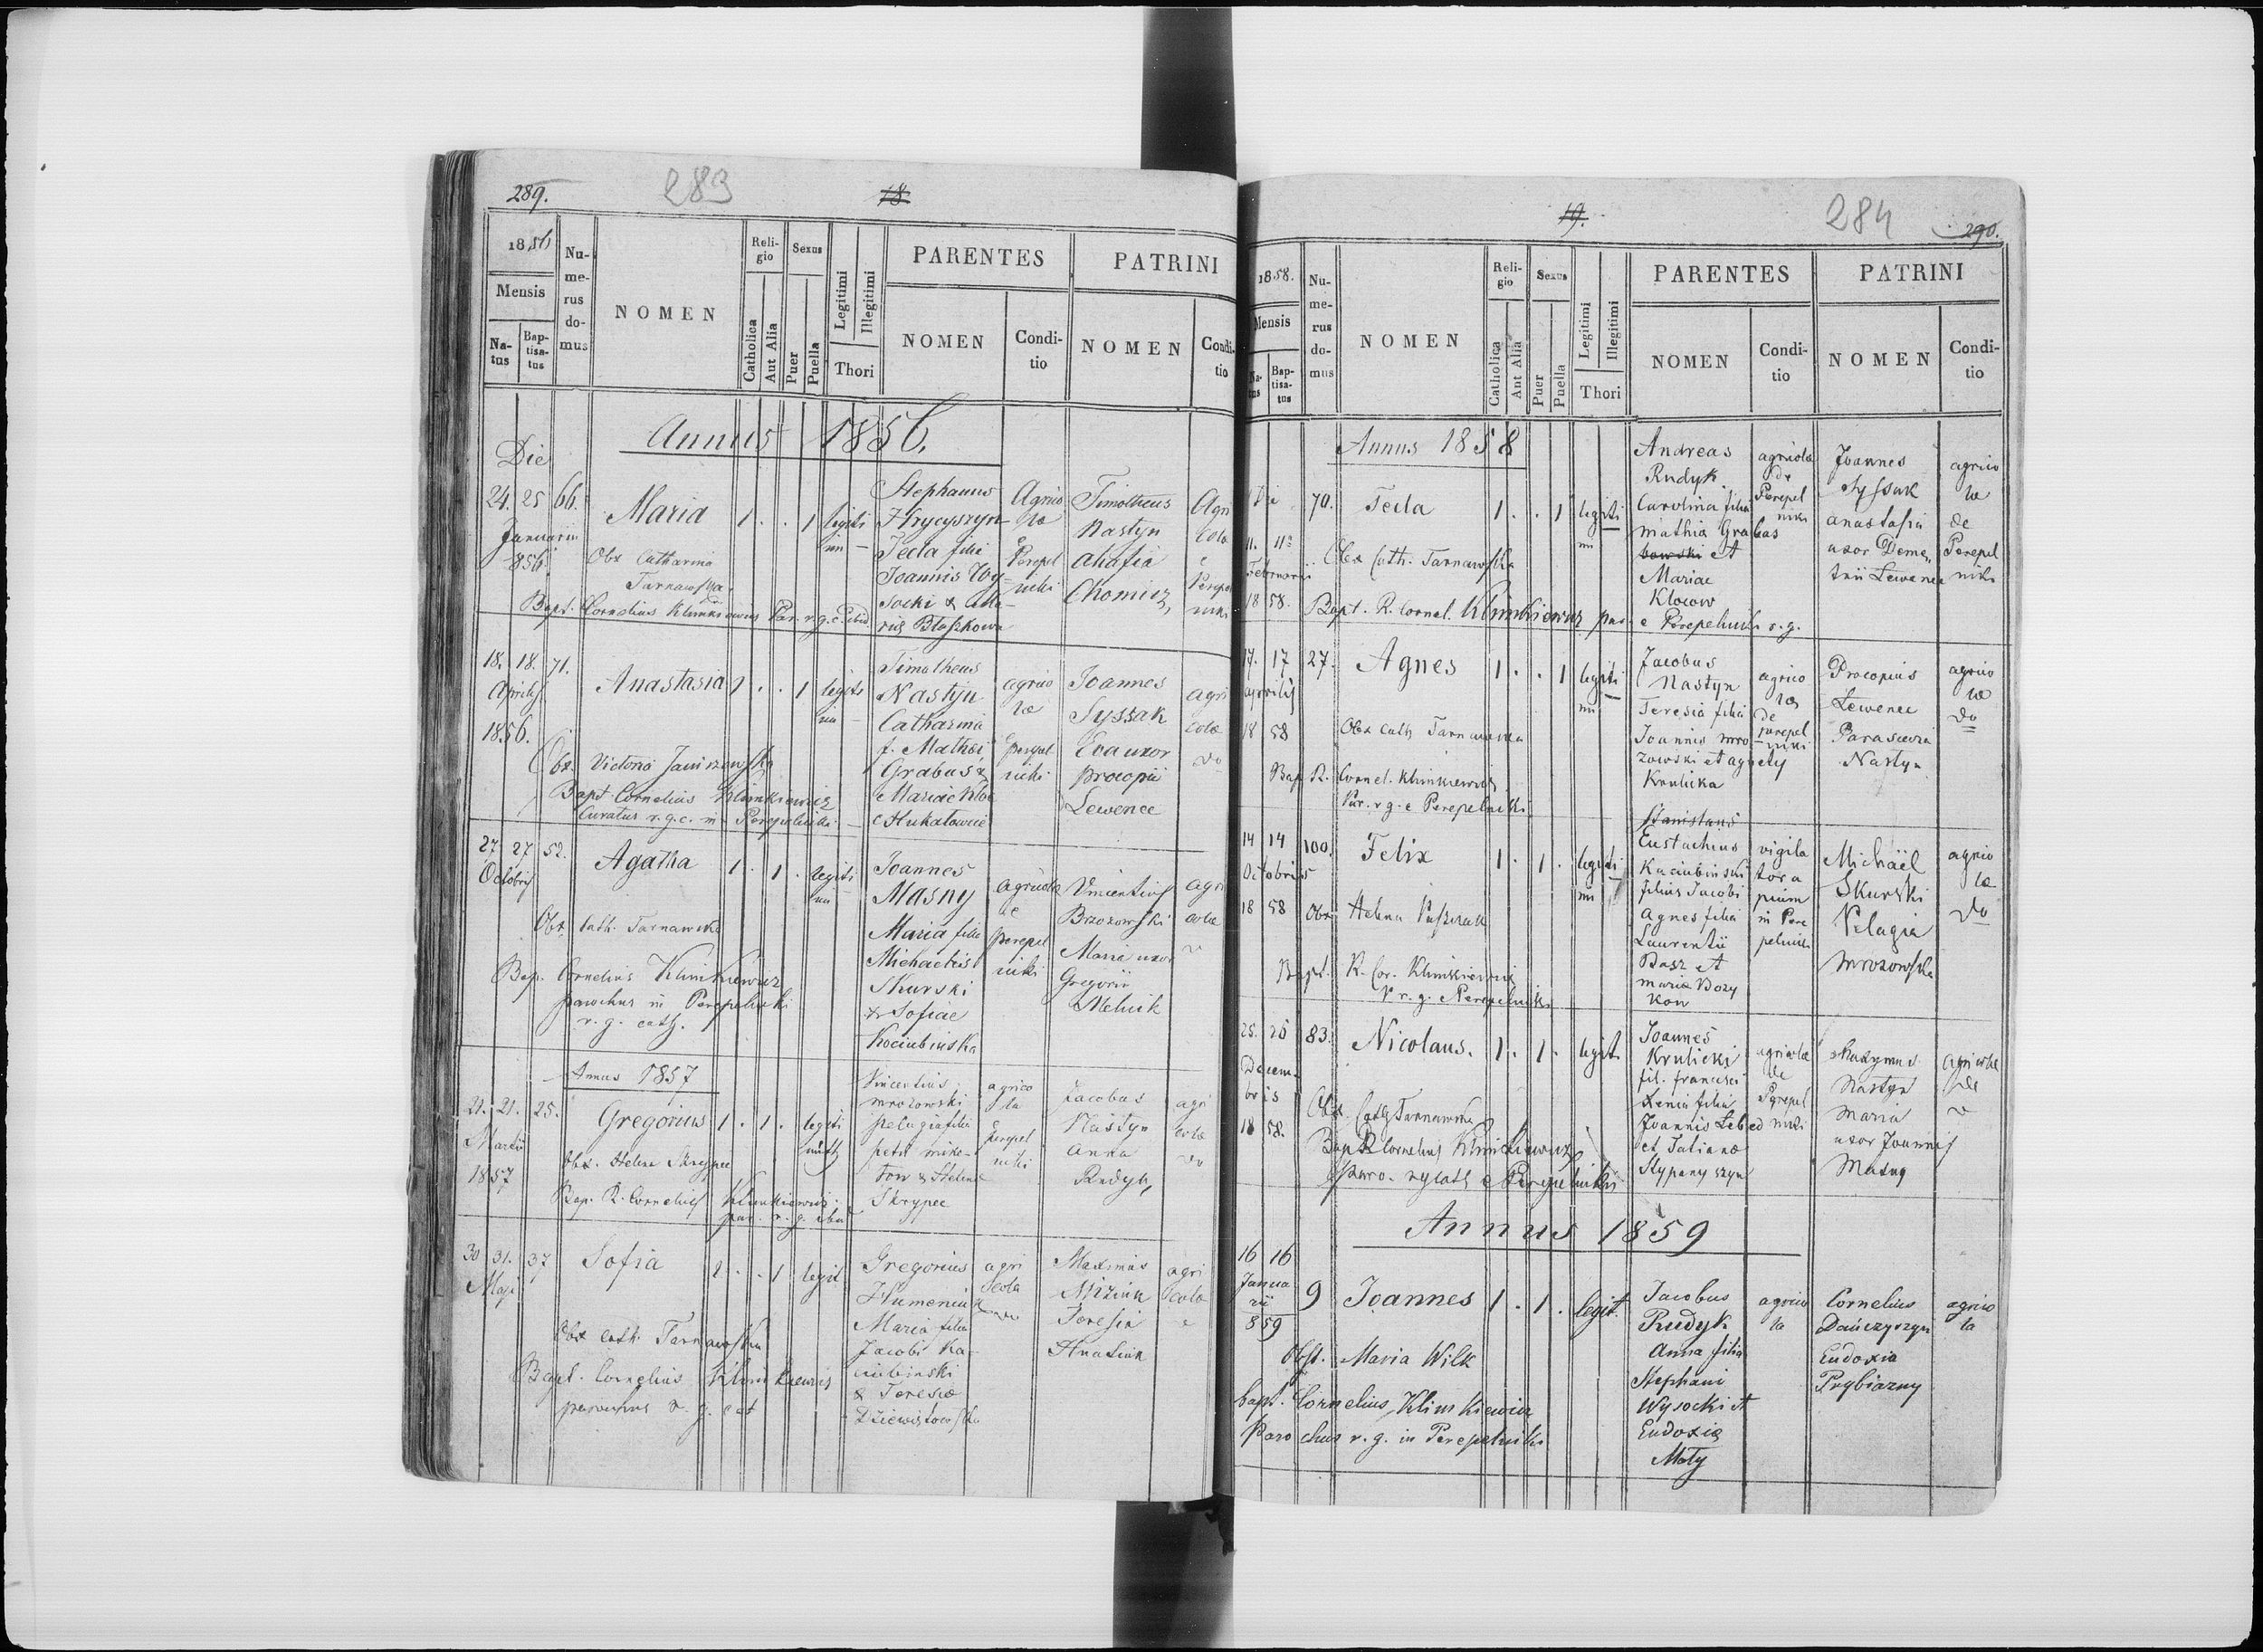 289.
283
18
1856
Mensis
Na-
tus
Bap-
tisa-
tus
Nu-
me-
rus
do-
mus
NOMEN
Reli-
gio
Catholica
Aut Alia
Sexus
Puer
Puella
Legitimi
Illegitimi
Thori
PARENTES
NOMEN
Condi-
tio
PATRINI
NOMEN
Condi-
tio
Annus 1856.
Die
24. 25 66. Maria 1 . . 1 legiti
mi
Januarii
856
Obx Catharina
Tarnawska
Bapt. Cornelius Klimkiewicz Par. r.g.c.
Stephanus
Hrycyszyn
Tecla filia
Joannis Wy-
socki & Ma-
riæ Błaszkowa
Agrico
læ
e
Perepel
niki
Timotheus
Nastyn
Ahafia
Chomicz,
Agri
colæ
e
Perepel
niki
18. 18. 71. Anastasia 1 . . 1 legiti
mi
Aprilis
1856.
Obx. Victoria Janiszewska
Bapt. Cornelius Klimkiewicz
Curatus r.g.c. in Perepelniki
Timotheus
Nastyn
Catharina
f. Mathæi
Grabas &
Mariæ Kloc
e Hukałowce
agrico
læ
e
perepel
niki
Joannes
Syssak
Eva uxor
procopii
Lewenec
agri
colæ
do
27 27 52. Agatha 1 . 1 . legiti
mi
Octobris
Obx. Cath. Tarnawska
Bap. Cornelius Klimkiewicz
parochus in Perepelniki
r.g. cath.
Joannes
Masny
Maria filia
Michaelis
Skurski
& Sofiae
Kociubinska
agricolæ
de
perepel
niki
Vincentius
Brzozowski
Maria uxor
Gregorii
Melnik
agri
colæ
Annus 1857
21. 21. 25. Gregorius 1 . 1 . legiti
Martii
1857
Obx. Helena Skrypec
Bap. R. Cornelius Klimkiewicz
par. r. g.
Vincentius
mrozowski
pelagia filia
petri mike-
tow & Helena
Skrypec
agrico
la
e
perepel
niki
Jacobus
Nastyn
Anna
Rudyk,
agri
colæ
do
30 31. 37 Sofia 1 . . 1 legit
Maji
Obx Cath. Tarnawska
Bapt. Cornelius Klimkiewicz
parochus r. g. cat
Gregorius
Humeniuk
Maria filia
Jacobi Ka-
ciubinski
& Teresiæ
Dziewistowska
agri
cola
Maximus
Miziuk
Teresia
Hnatiuk
agri
cola
19.
284
290.
1858.
Mensis
Na-
tus
Bap-
tisa-
tus
Nu-
me-
rus
do-
mus
NOMEN
Reli-
gio
Catholica
Aut Alia
Sexus
Puer
Puella
Legitimi
Illegitimi
Thori
PARENTES
NOMEN
Condi-
tio
PATRINI
NOMEN
Condi-
tio
Annus 1858
Die 70. Tecla 1 . . 1 legiti
mi
11. 11
Februarii
18 58.
Obx Cath. Tarnawska
Bapt. R. Cornel. Klimkiewicz par e Perepelniki r.g.
Andreas
Rudyk
Carolina filia
mathia Grabas
bowski et
Mariae
Klocow
agricolæ
de
Perepel
niki
Joannes
Syssak
anastasia
uxor Deme,,
trii Lewenec
agrico
læ
de
Perepel
niki
17. 17 27. Agnes 1 . . 1 legiti
mi
aprilis
18 58
Obx Cath Tarnawska
Bap R. Cornel. Klimkiewicz
Par. r g. e Perepelniki
Jacobus
Nastyn
Teresia filia
Joannis mro
zowski et agnety
Krulicka
agrico
læ
de
perepel
niki
Procopius
Lewenec
Parascevia
Nastyn
agrico
læ
do
14 14 100. Felix 1 . 1 . legiti
mi
Octobris
18 58 Obx Helena Puszkar
Bapt. R. Cor. Klimkiewicz
P r. g. e Perepelniki
Stanislaus
Eustachius
Kaciubinski
filius Jacobi
Agnes filia
Laurentii
Basz et
maria Bozy
kow
vigila
tor a
pium
in Pere
pelniki
Michaël
Skurski
Pelagia
mrozowska
agrico
læ
do
25. 25 83. Nicolaus. 1 . 1 . legit.
Decem-
bris
18 58.
Obx. Cath Tarnawska
Bap R Cornelius Klimkiewicz
Paro. r g cath e Perepelniki
Joannes
Krulicki
fil. francisci
Xenia filia
Joannis Lebed
et Tatianæ
Stypanyszyn
agricolæ
de
Perepel
niki
Maxymus
Nastyn
Maria
uxor Joannis
Masny
agricolæ
de
Annus 1859
16 16
Janua
rii
859
9 Joannes 1 . 1 . legit.
Obst. Maria Wilk
bapt. Cornelius Klimkiewicz
Parochus r. g. in Perepelniki
Jacobus
Rudyk
Anna filia
Stephani
Wysocki et
Eudoxia
Maty
agrico
la
Cornelius
Dańczyszyn
Eudoxia
Prybiazny
agrico
la